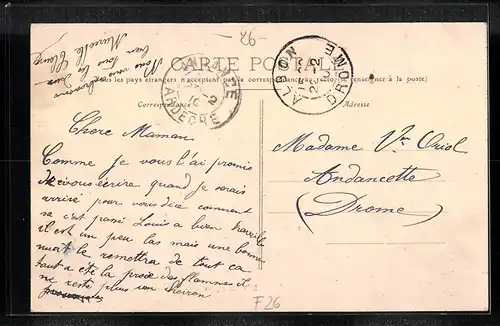 26-
CARTE POSTALE
Tous les pays étrangers n'acceptent pas la correspondance au recto (se renseigner à la poste)
Correspondance
Adresse
ALBON
DROME
ARDECHE
Chere Maman
Comme je vous l'ai promis
de vous écrire quand je serais
arrivé pour vous dire comment
sa c'est passé Louis a bien travaille
il est un peu las mais une bonne
nuit le remettra de tout ca
tout a été la proie des flammes il
ne reste plus un chevron
Nous vous
bien tous
Marcelle
Madame Vve Oriol
Andancette
(Drome)
F26